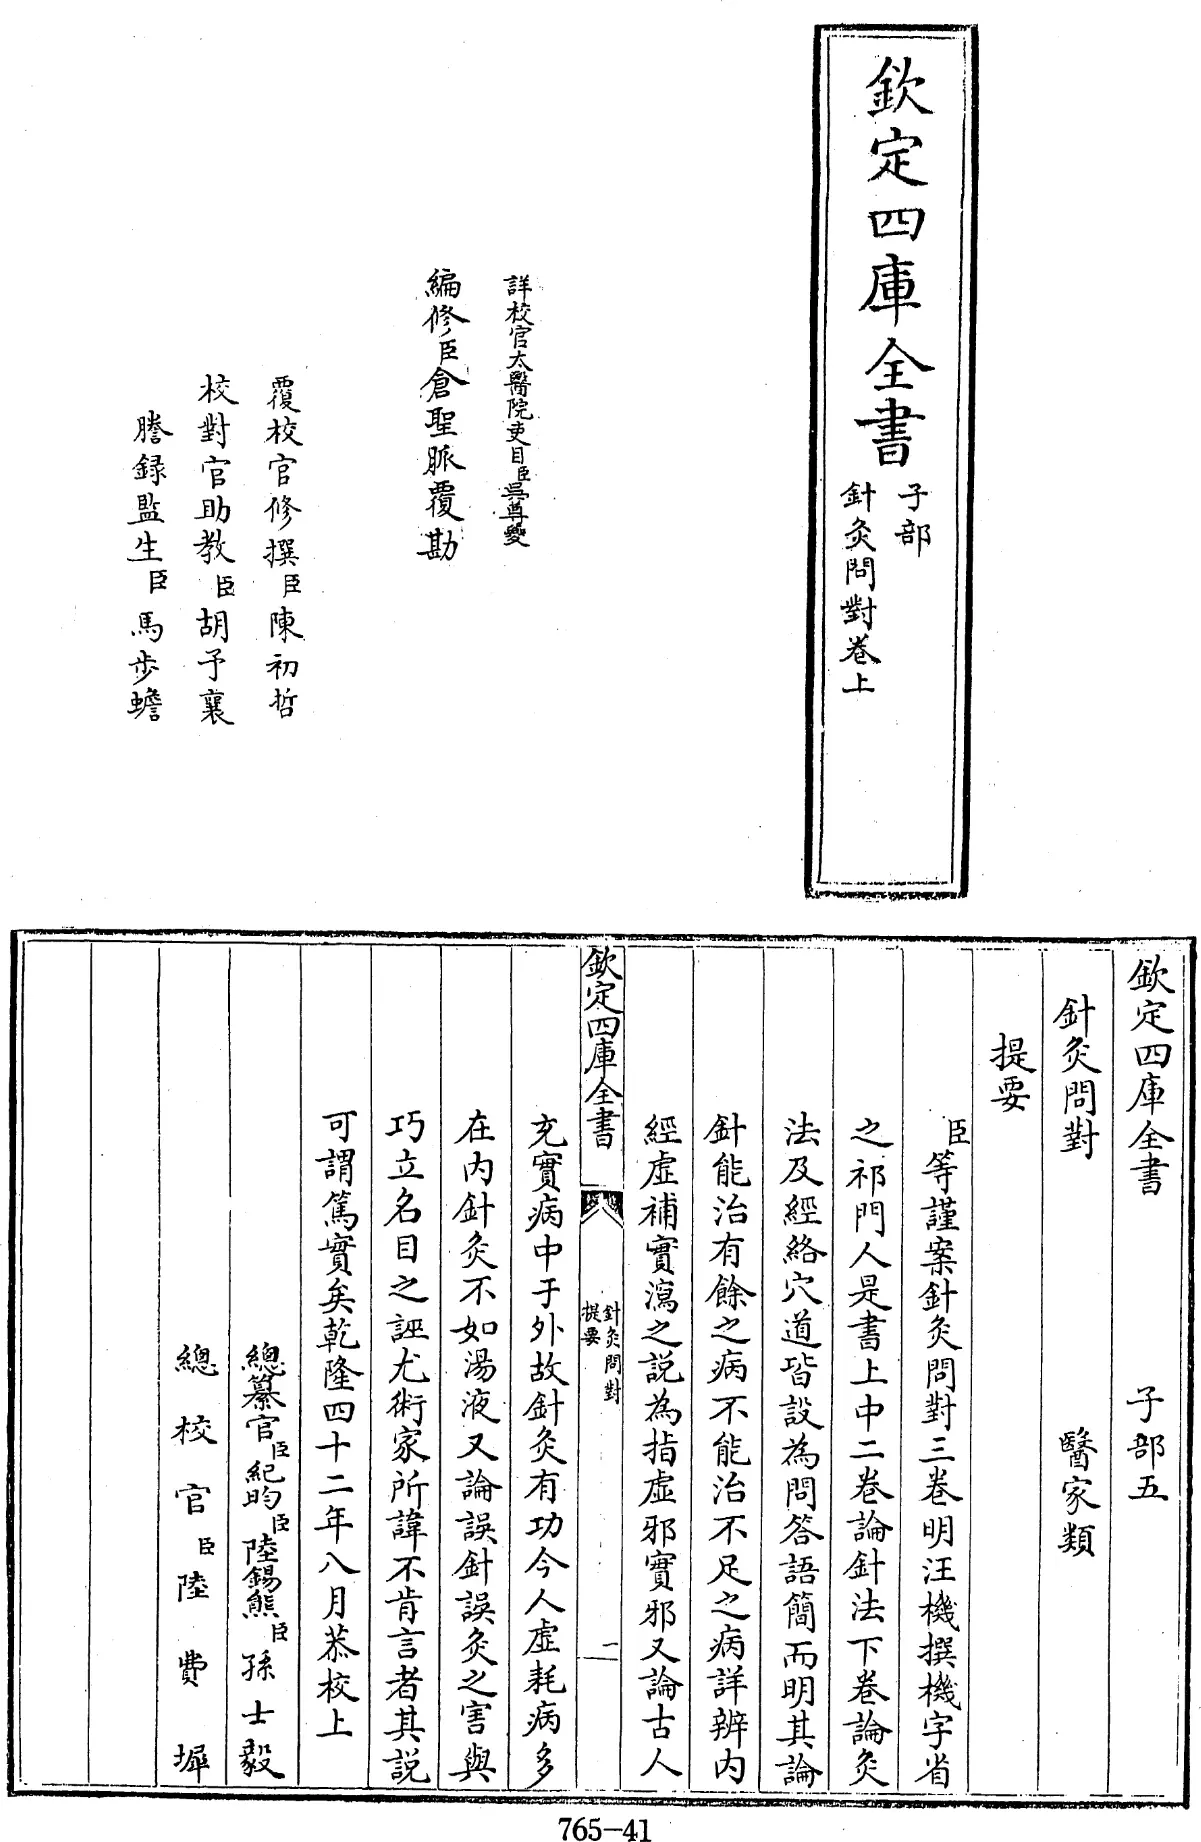 欽定四庫全書
子部
針灸問對卷上
詳校官太醫院吏目臣吳尊夔
編修臣倉聖脈覆勘
覆校官修撰臣陳初哲
校對官助教臣胡予襄
謄録監生臣馬步蟾
欽定四庫全書 子部五
針灸問對 醫家類
提要
臣等謹案針灸問對三卷明汪機撰機字省
之祁門人是書上中二卷論針法下卷論灸
法及經絡穴道皆設為問答語簡而明其論
針能治有餘之病不能治不足之病詳辨內
經虛補實瀉之説為指虛邪實邪又論古人
欽定四庫全書
針灸問對
提要
二
充實病中于外故針灸有功今人虛耗病多
在內針灸不如湯液又論誤針誤灸之害與
巧立名目之誣尤術家所諱不肯言者其説
可謂篤實矣乾隆四十二年八月恭校上
總纂官臣紀昀臣陸錫熊臣孫士毅
總校官臣陸費墀
765-41